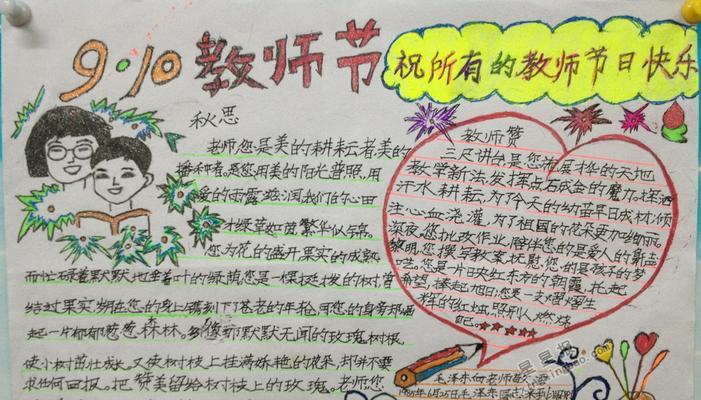 9.10 教师节
祝所有的教师节日快乐
秋思
老师您是美的耕耘者,美的
播种者,是您用美的阳光普照,用
爱的雨露滋润,我们的心田
才绿草如茵,繁华似锦。
您为花的盛开,果实的成熟
而忙碌着,默默地坐着叶的绿荫,您是一棵挺拔的树,曾
结过果实,
起一片郁郁葱葱森林。多像那默默无闻的玫瑰树根,
使小树茁壮成长,又使树枝上挂满娇艳的花朵,却并不要
求任何回报。把赞美留给树枝上的玫瑰。老师,您
教师赞
三尺讲台是您施展才华的天地
教学新法,发挥点石成金的魔力,挥洒
汗水耕耘,为了今天的幼苗早日成材,倾
注心血浇灌,为了祖国的花朵更加绚丽。
深夜,您批改作业,陪伴您的是爱人的鼾声
黎明,您撰写教案,抚慰您的是孩子的梦
呓。您是一片日映红东方的朝霞,托起
希望,捧起旭日,您是一支熠熠生
辉的红烛,照别人燃烧